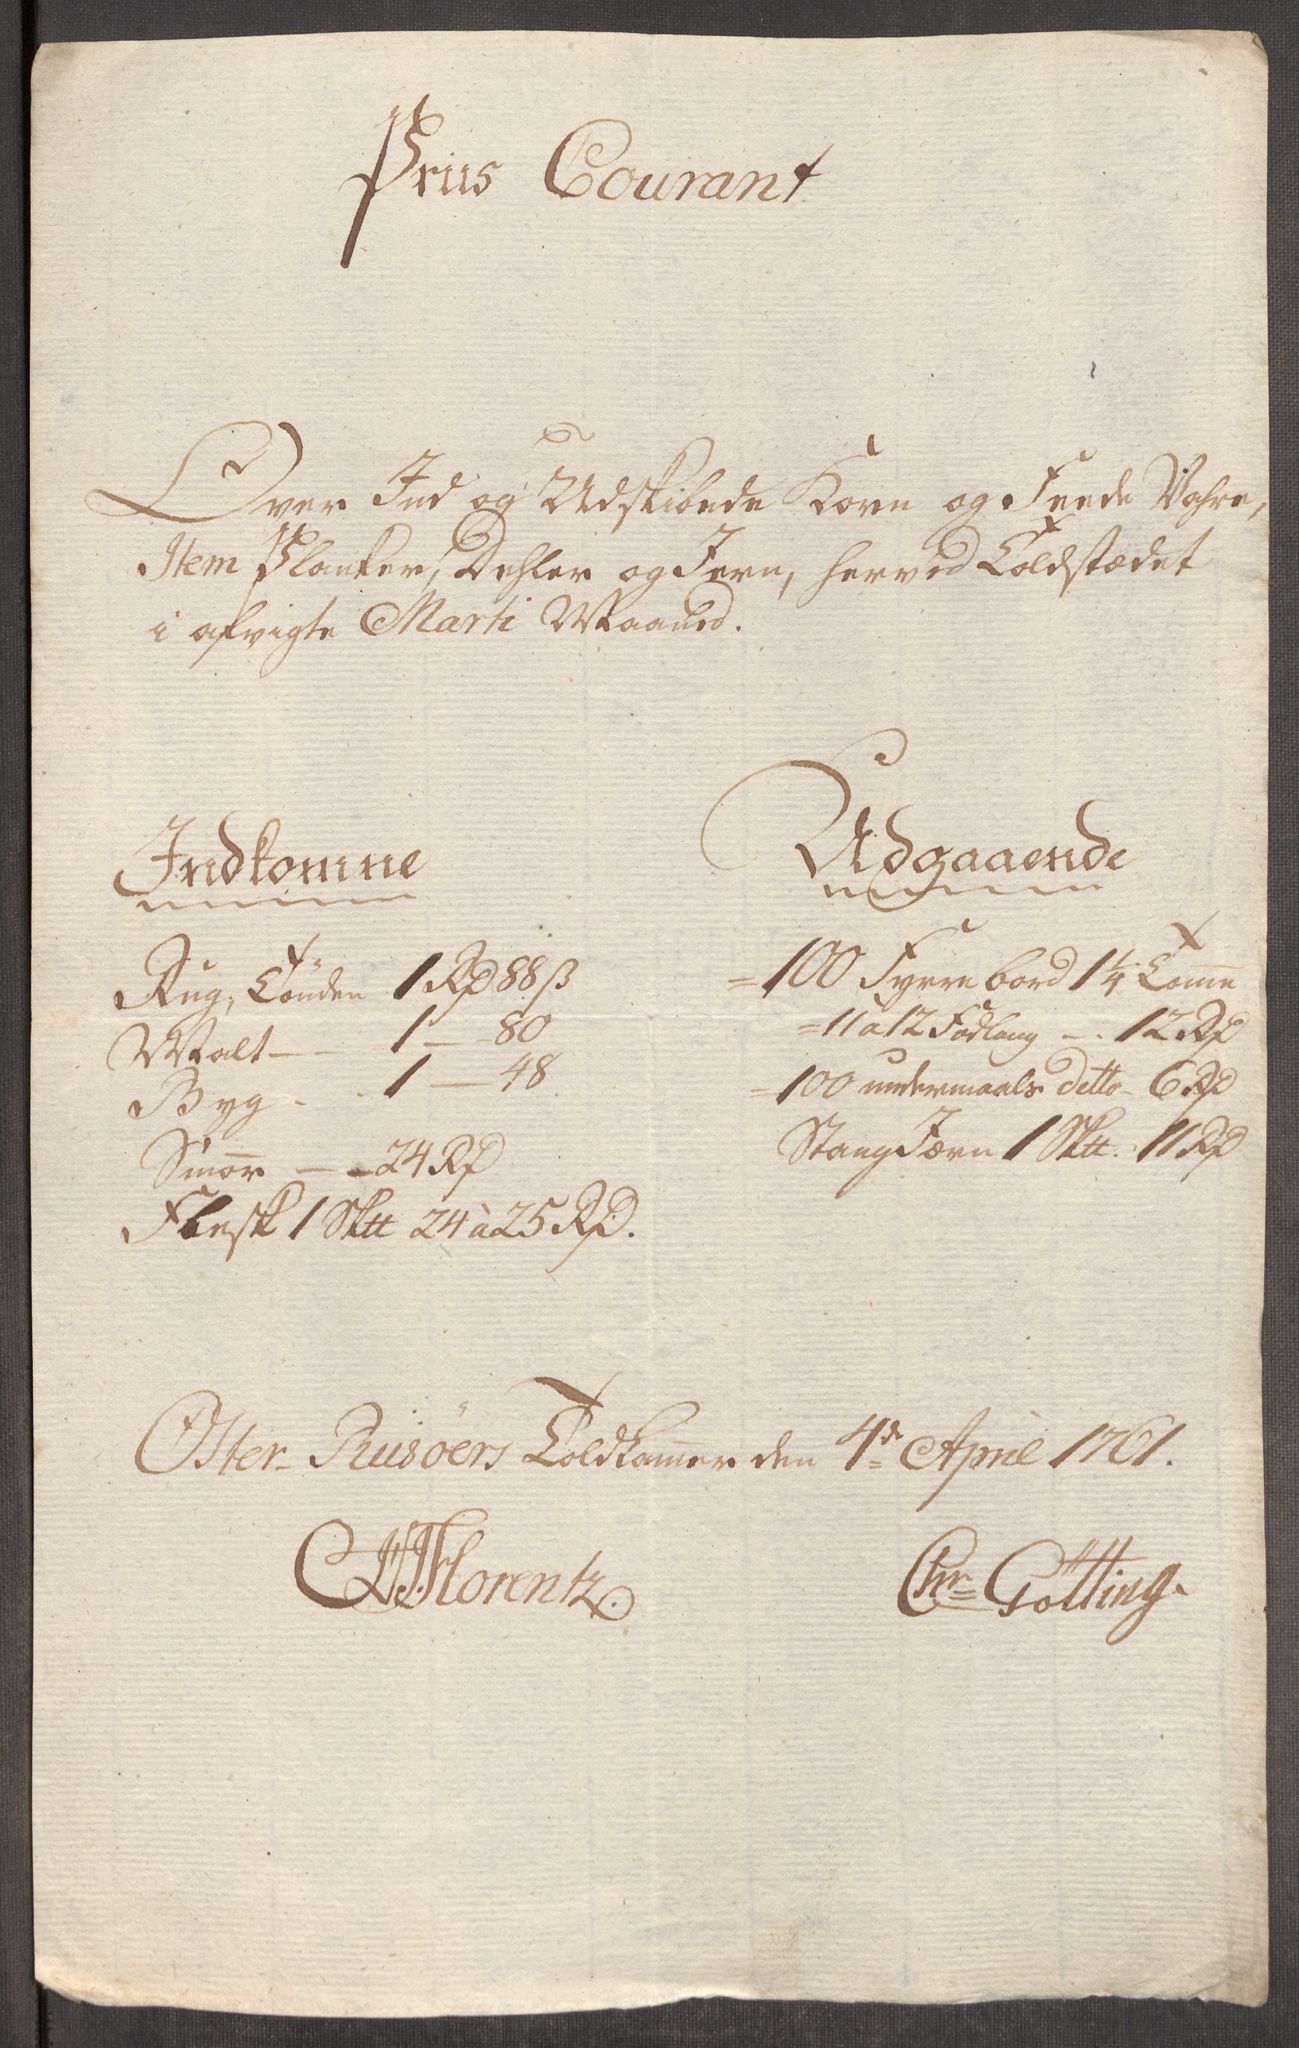 Priis Courant
Over Ind og Udskibede Korn og Feede Vahre,
Item Planker, Dehler og Jern, herved Toldstædet
i afvigte Marti Maaned.
Indkomne
Rug, Tønden 1 Rd 88 ß
Malt — — 1 — 80
Byg - - 1 — 48
Smør — — 24 Rd
Flesk 1 Sktt 24 à 25 Rd.
Udgaaende
= 100 Fyrre bord 1¼ Tomme
= 11 a 12 Fodlang — . 12 Rd
= 100 undermaals ditto - 6 Rd
Stang Jærn 1 Sktt. 11 Rd
Øster-Riisöers Toldkammer den 4de April 1761.
Florentz.
Chr= Gotting.